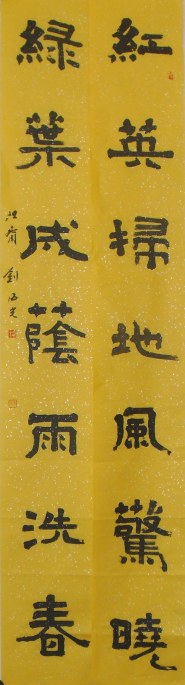 紅英掃地風驚曉
綠葉成蔭雨洗春